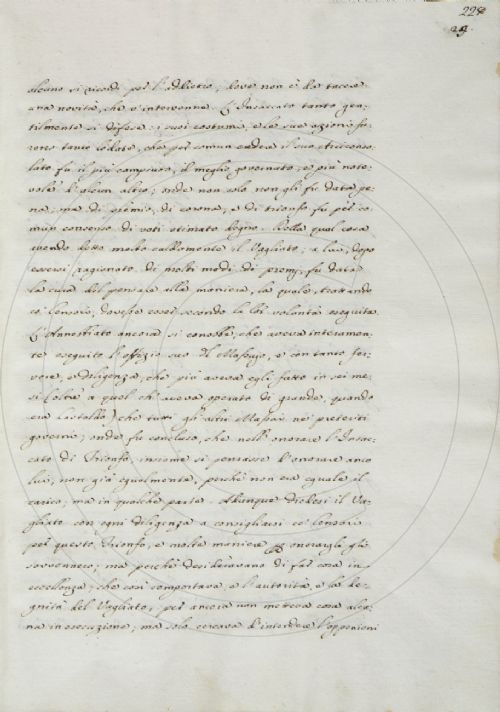 228
29.
alcuno si ricordi per l'addietro, dove non è da tacere
una novità, che v'intervenne. L'Insaccato tanto gen-
tilmente si difese: i suoi costumi, e le sue azioni fu-
rono tanto lodate, che per comun credere il suo Arciconso-
lato fu il più compiuto, il meglio governato, e più note-
vole d'alcun altro; onde non solo non gli fu data pe-
na, ma di premio, di corona, e di trionfo fu per co-
mun consenso di voti stimato degno. Della qual cosa
avendo detto molto caldamente il Vagliato; a lui, dopo
essersi ragionato di molti modi di premj, fu data
la cura del pensare alla maniera, la quale, trattando
co' Censori, dovesse essere secondo la lor volontà eseguita.
L'Annestato ancora si conobbe che aveva interamen-
te eseguito l'offizio suo del Massajo, e con tanto fer-
vore, e diligenza, che più aveva egli fatto in sei me-
si (oltre a quel ch'aveva operato di grande, quando
era Castaldo) che tutti gli altri Massai ne' preteriti
governi; onde fu concluso, che nell'onorare l'Insac-
cato di Trionfo, insieme si pensasse d'onorare anco
lui, non già egualmente, perchè non era eguale il
carico; ma in qualche parte. Adunque diedesi il Va-
gliato con ogni diligenza a consigliarsi co' Censori
per questo Trionfo, e molte maniere per onorargli gli
sovvennero; ma perchè desideravano di far cosa in
eccellenza; che così comportava, e l'autorità, e la de-
gnità del Vagliato, per ancora non metteva cosa alcu-
na in esecuzione; ma solo cercava d'intender l'oppenioni